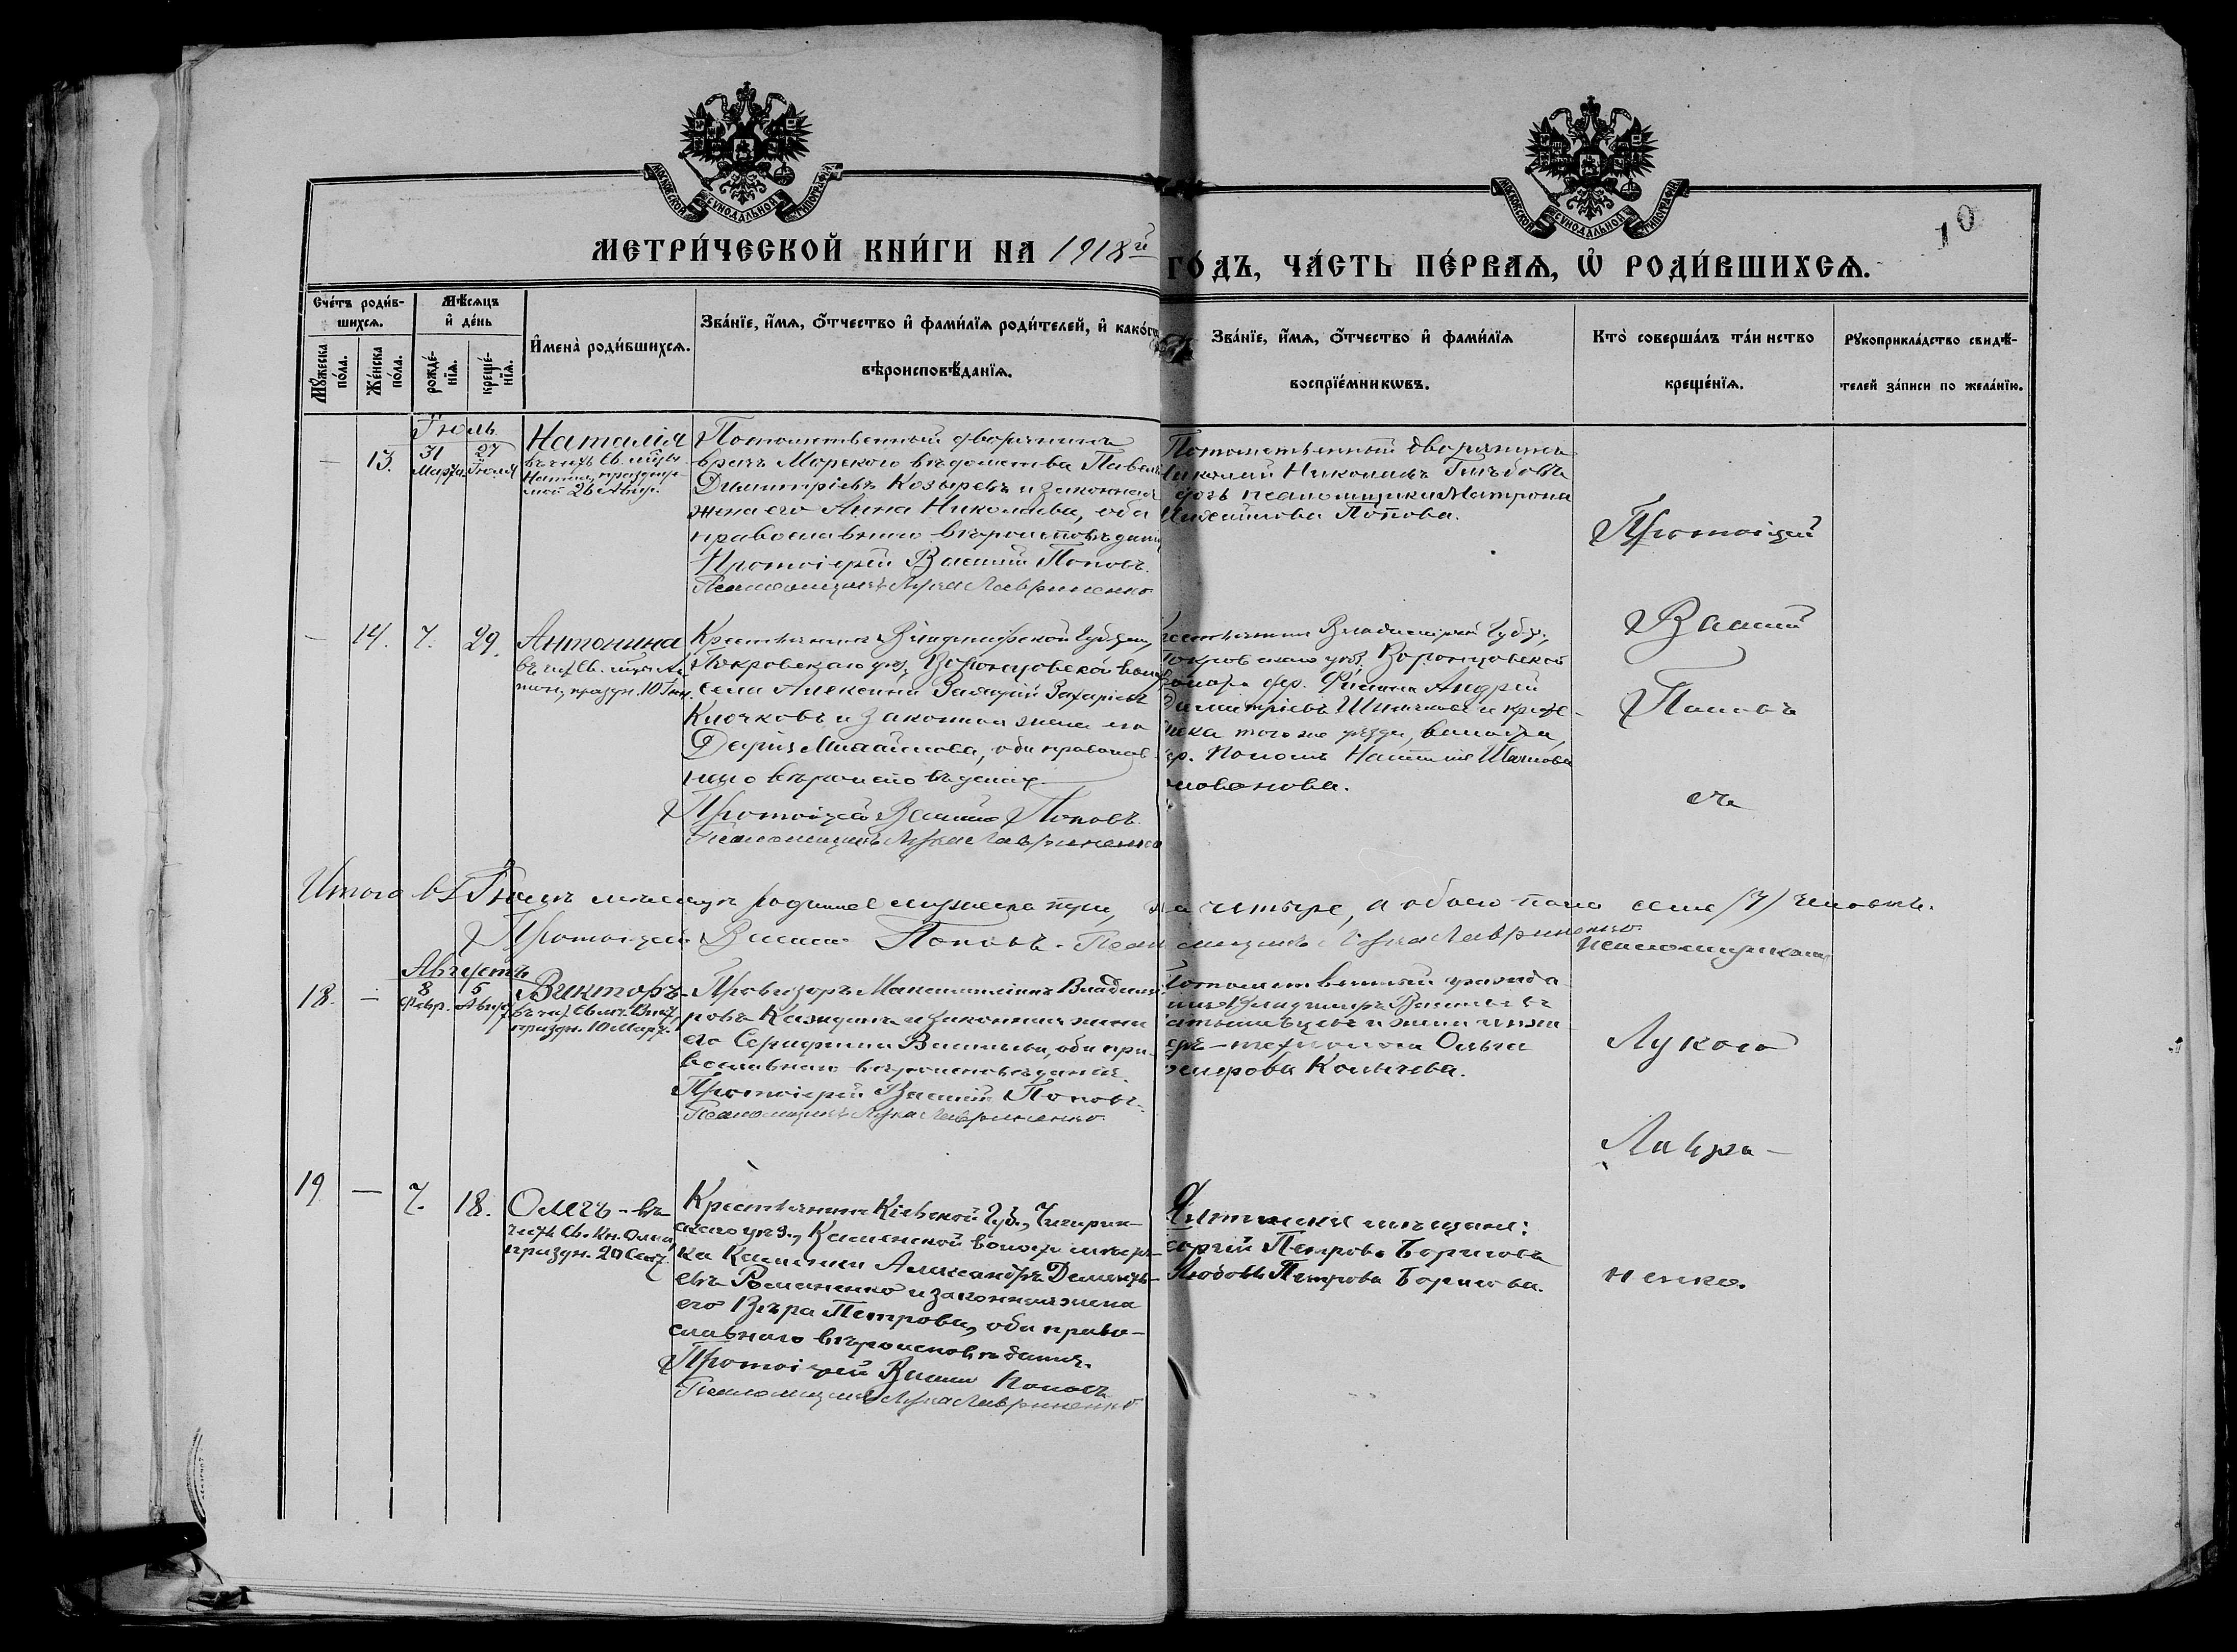 МОСКОВСКОЙ СѴНОДАЛЬНОЙ ТИПОГРАФІИ
МОСКОВСКОЙ СѴНОДАЛЬНОЙ ТИПОГРАФІИ
10
МЕТРИ́ЧЕСКОЙ КНИ́ГИ НА 1918й
ГО́ДЪ, ЧА́СТЬ ПЕ́РВАѦ, Ѡ҆ РОДИ́ВШИХСѦ.
Сче́тъ роди́в-
шихсѧ.
Мѣ́сѧцъ
и҆ де́нь
Мꙋ́жеска
по́ла.
Же́нска
по́ла.
рожде́-
нїѧ.
креще́-
нїѧ.
И҆мена̀ роди́вшихсѧ.
Зва́нїе, и҆́мѧ, ѻ҆́тчество и҆ фами́лїѧ роди́телей, и҆ како́гѡ
вѣроисповѣ́данїѧ.
Зва́нїе, и҆́мѧ, ѻ҆́тчество и҆ фами́лїѧ
воспрїе́мникѡвъ.
Кто̀ соверша́лъ та́инство
креще́нїѧ.
Рꙋкоприкла́дство свидѣ́-
телей за́писи по жела́нїю.
Іюль
—
13.
31
Марта
27
Іюля
Наталія
въ честь св. мцы
Наталіи, праздну-
мой 26 Авг.
Потомственный дворянинъ
врачъ Морского вѣдомства Павелъ
Димитріевъ Козыревъ и законная
жена его Анна Николаева, оба
православнаго вѣроисповѣданія
Протоіерей Василій Поповъ.
Псаломщикъ Лука Лавриненко
Потомственный дворянинъ
Николай Николаевъ Глѣбовъ
дочь псаломщика Матрона
Михайлова Попова.
Протоіерей
Василій
Поповъ
съ
—
14.
7.
29.
Антонина
въ честь св. муч. Ан-
тон., праздн. 10 Іюн.
Крестьянинъ Владимірской губерн.,
Покровскаго уѣз. Воронцовской вол.
села Алексина Захарій Захаріевъ
Клочковъ и законная жена его
Дарія Михайлова, оба православ-
наго вѣроисповѣданія
Протоіерей Василій Поповъ.
Псаломщикъ Лука Лавриненко
Крестьянинъ Владимірской губер.,
Покровскаго уѣз. Воронцовской
волости дер. Андрей
Димитріевъ и крест-
янка того же уѣзда, волости,
дер.
Итого въ Іюлѣ мѣсяцѣ родилось мужеска три, жен. четыре, а обоего пола семь /7/ человѣкъ.
Протоіерей Василій Поповъ. Псаломщикъ Лука Лавриненко.
Псаломщикомъ
Лукою
Лаври-
ненко.
Августъ
18.
—
8
Февр.
5
Авгус.
Викторъ
въ чес. св. муч. Викт.
праздн. 10 Март.
Провизоръ Максимиліанъ Владими-
ровъ и законная жена
его Серафима Васильева, оба пра-
вославнаго вѣроисповѣданія.
Протоіерей Василій Поповъ.
Псаломщикъ Лука Лавриненко.
Потомственный гражда-
нинъ Владимиръ Васильевъ
и жена инже-
нера-технолога Ольга
19
—
7.
18.
Олегъ - въ
честь св. Кн. Олега
праздн. 20 Сент.
Крестьянинъ Кіевской губ., Чигирин-
скаго уѣз., Каменской волости мѣстеч-
ка Каменки Александръ Дементь-
евъ Романенко и законная жена
его Вѣра Петрова, оба право-
славнаго вѣроисповѣданія.
Протоіерей Василій Поповъ
Псаломщикъ Лука Лавриненко
Ялтинскіе мѣщане:
Георгій Петровъ Борисовъ
Любовь Петрова Борисова.